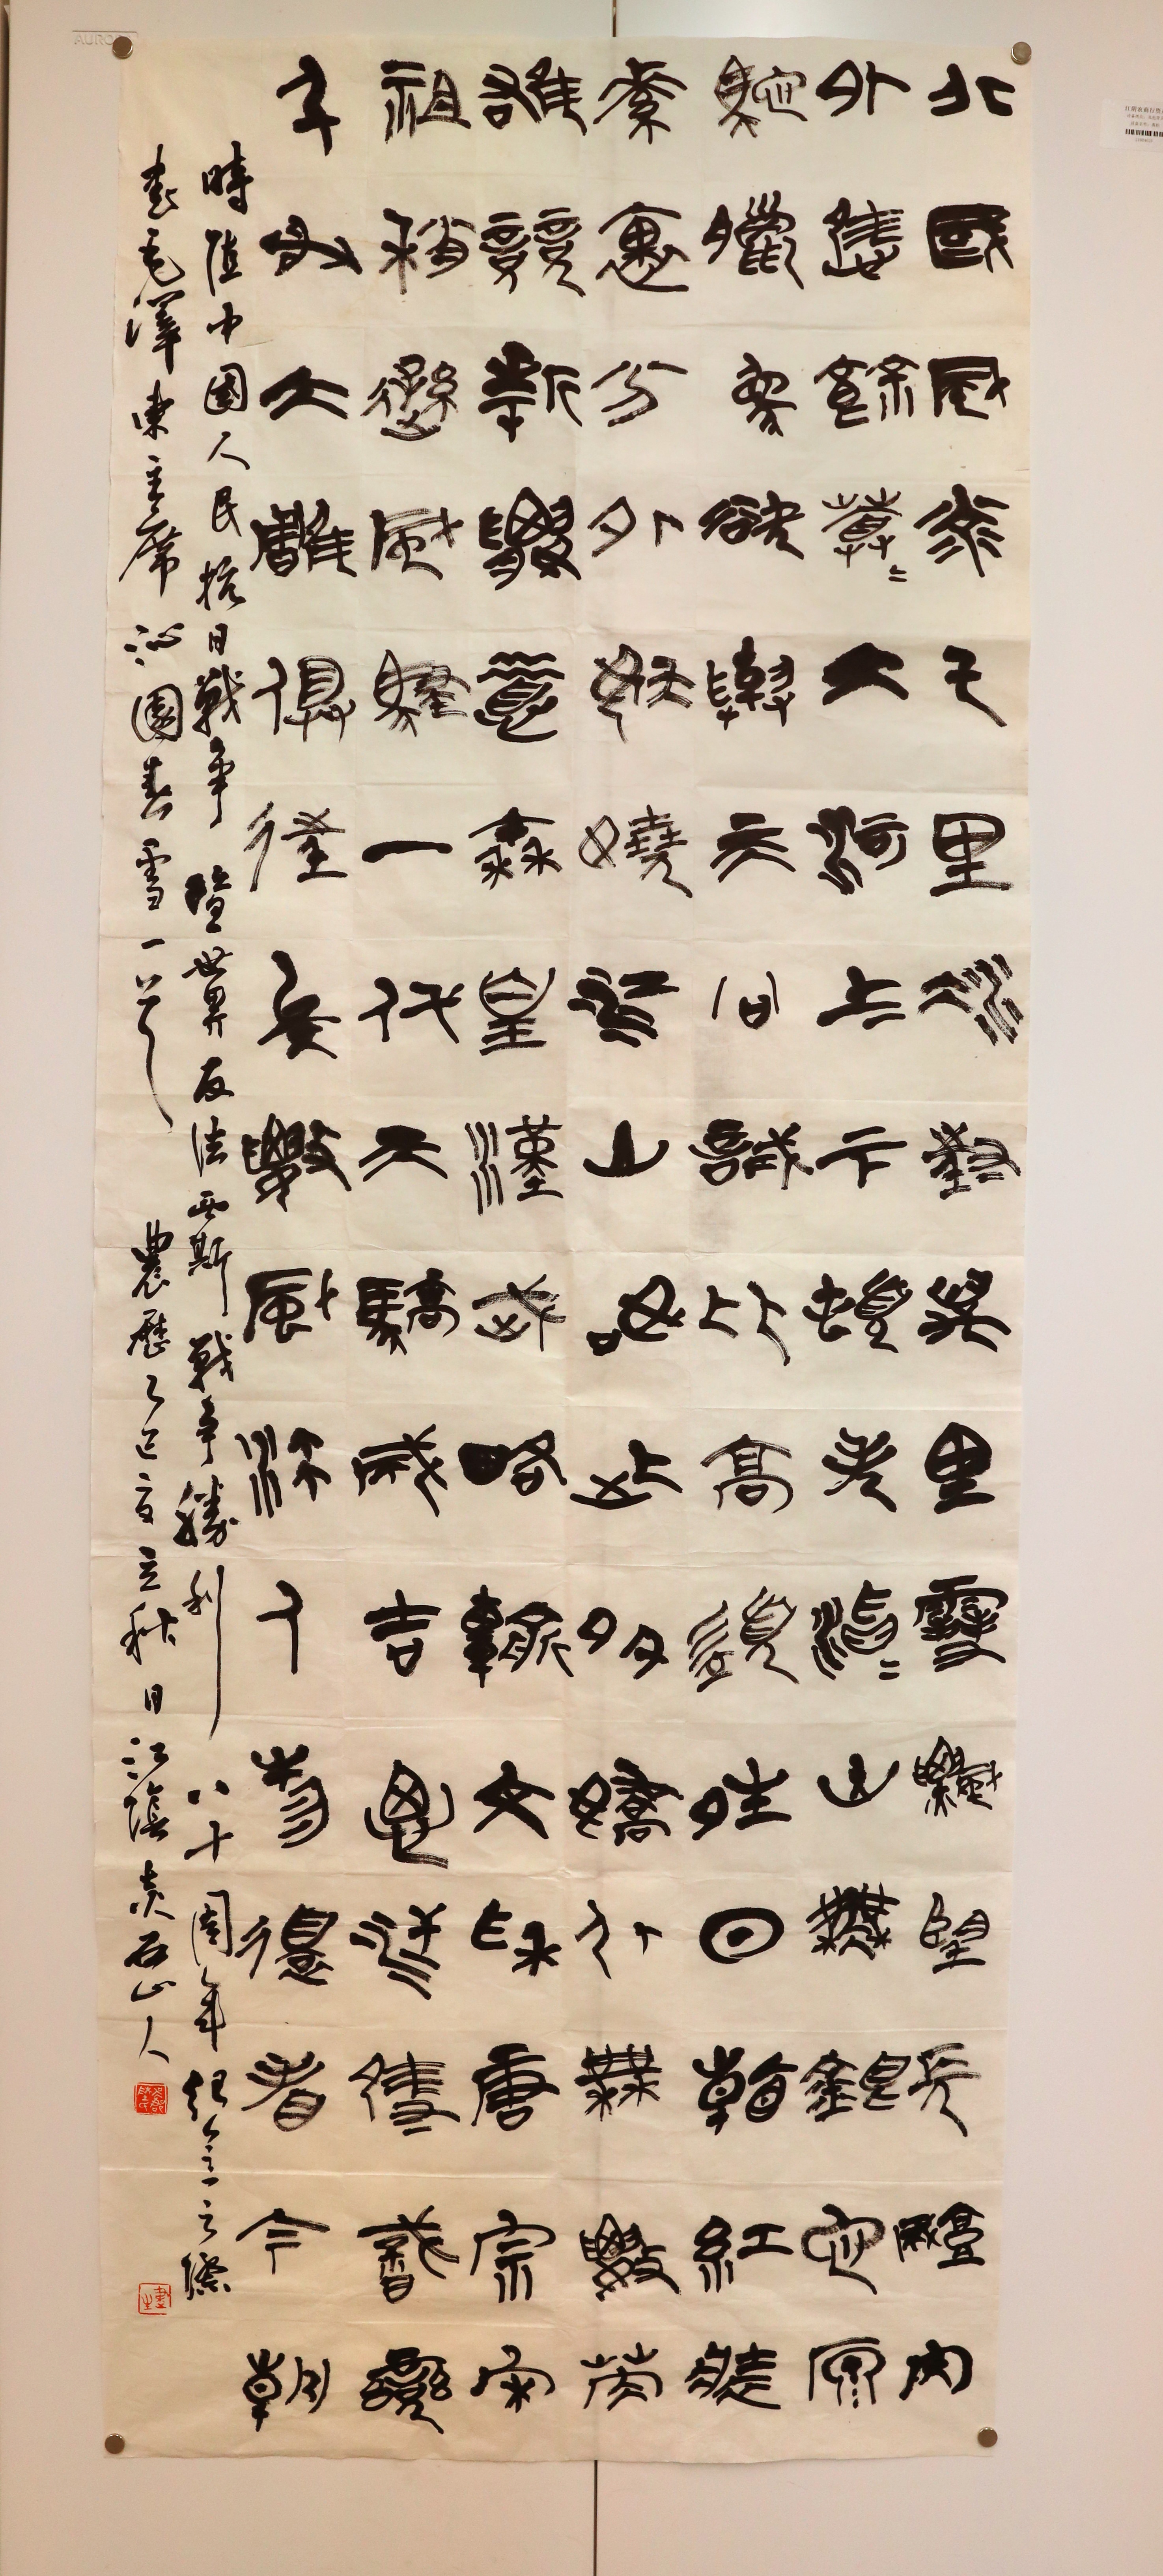 北國風光千里冰封萬里雪飄望長城內
外惟餘莽〻大河上下頓失滔〻山舞銀蛇原
馳蠟象欲與天公試比高須晴日看紅裝
素裹分外妖嬈江山如此多嬌引無數英
雄競折腰惜秦皇漢武略輸文采唐宗宋
祖稍遜風騷一代天驕成吉思汗隻識彎
弓射大雕俱往矣數風流人物還看今朝
時值中國人民抗日戰爭暨世界反法西斯戰爭勝利八十周年紀念之際
書毛澤東主席沁園春雪一首農歷乙巳立秋日江陰石山人